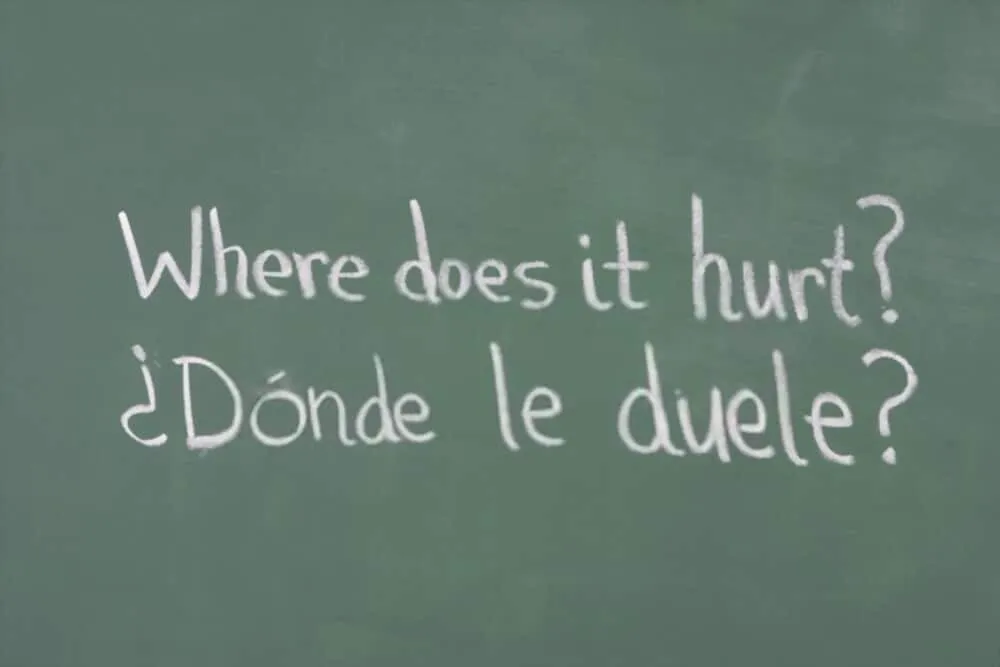 Where does it hurt?
¿Dónde le duele?